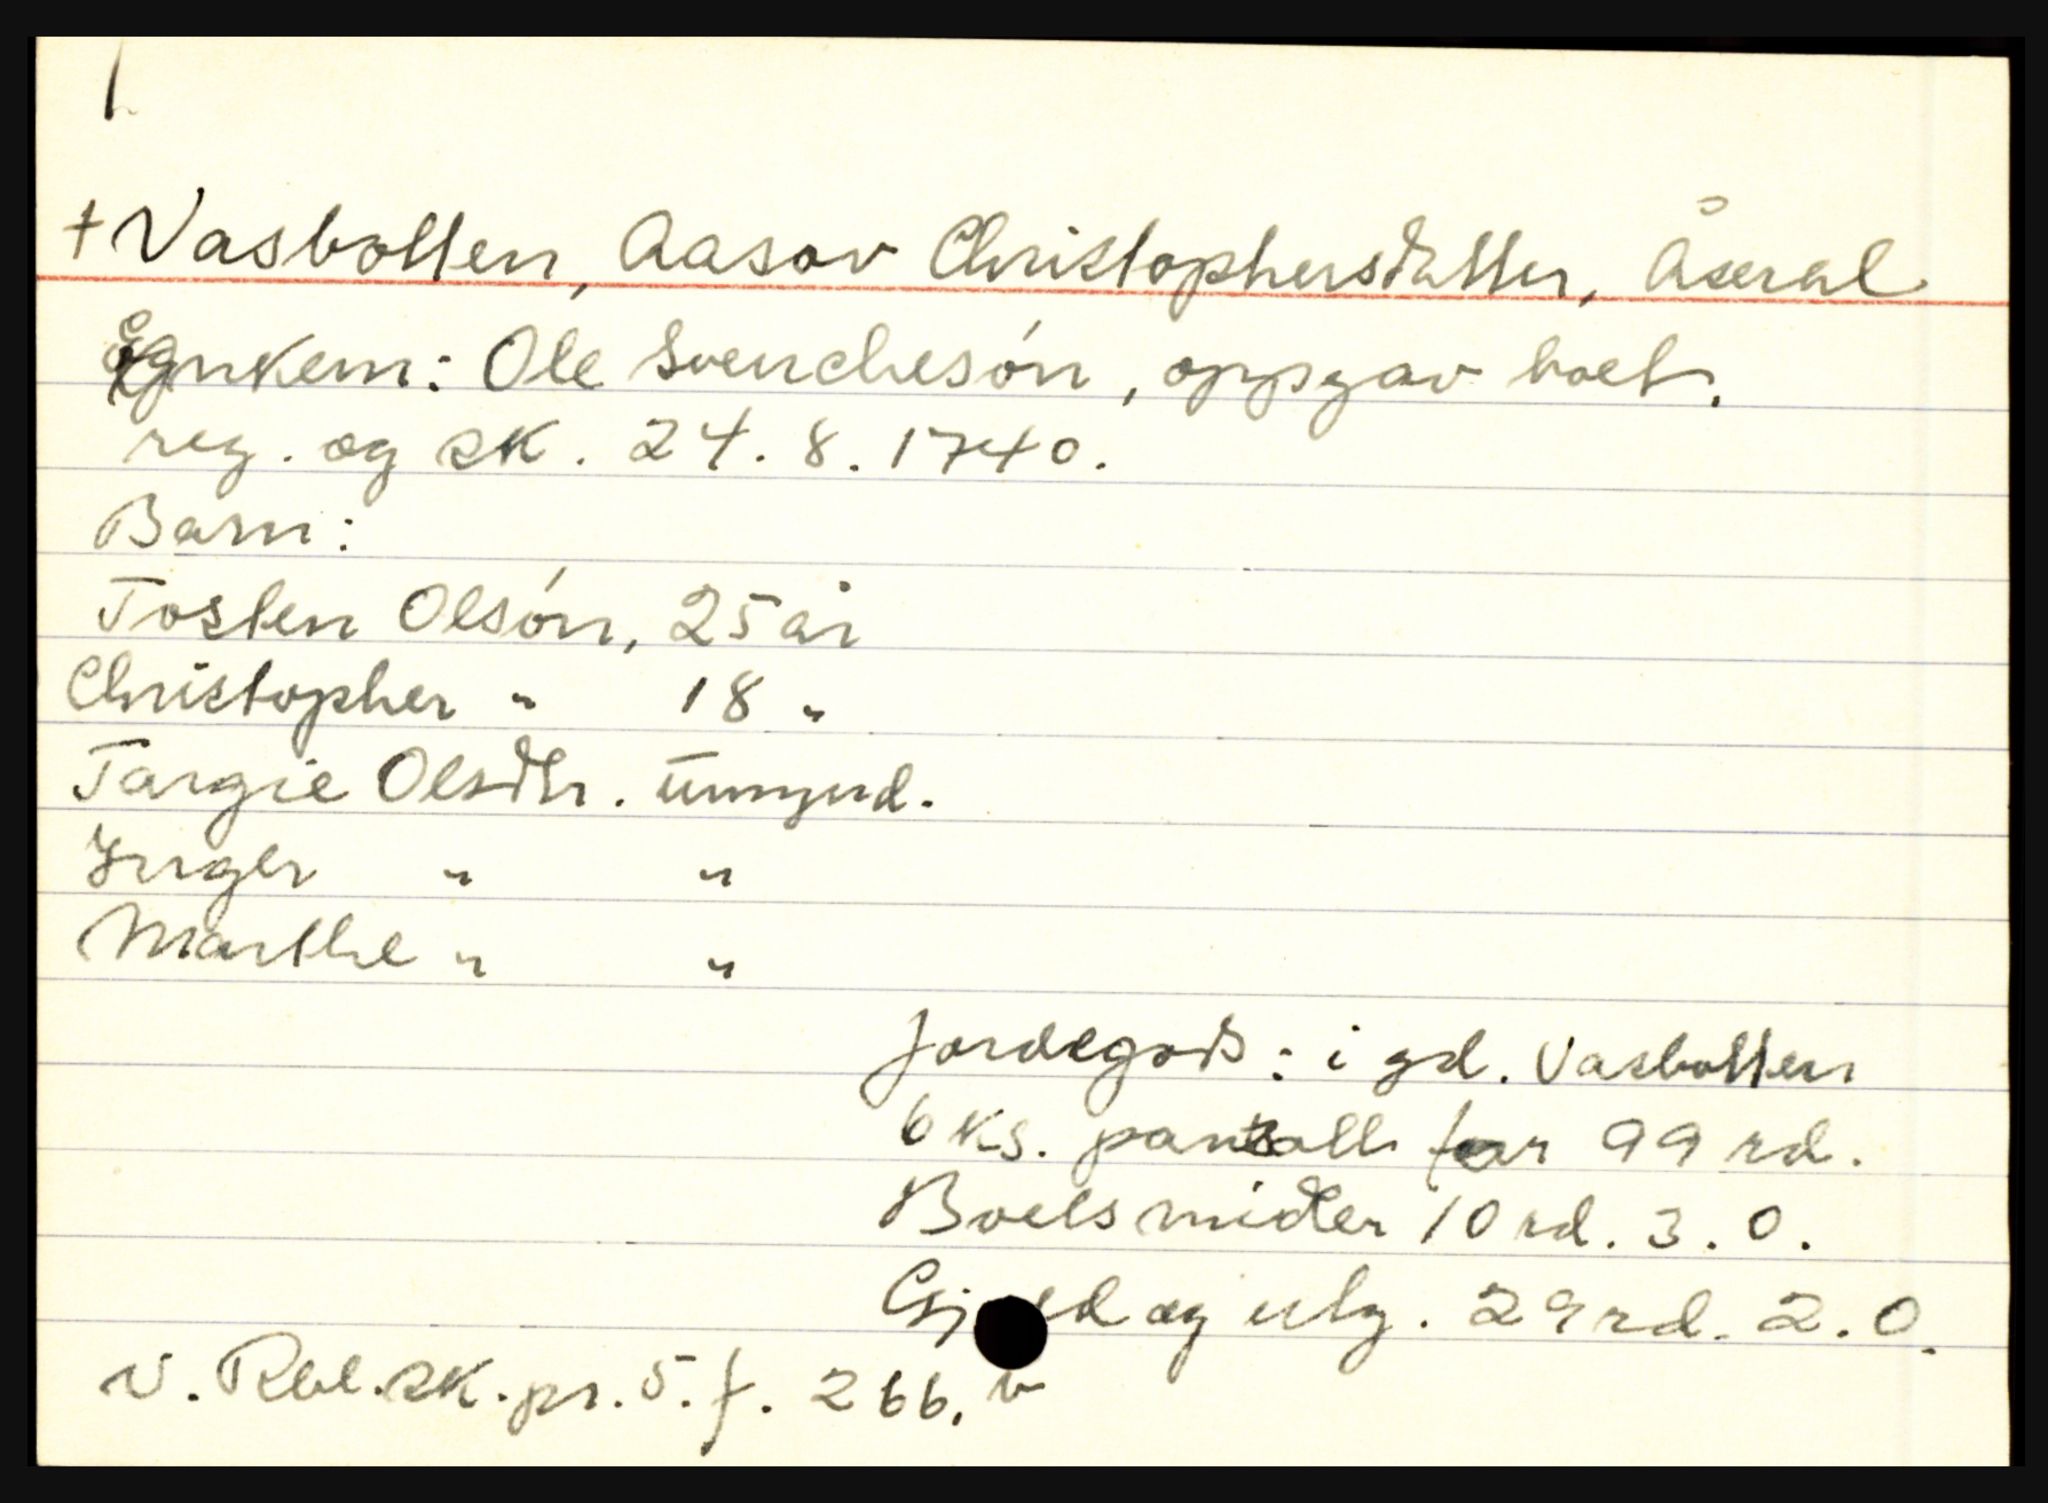 + Vasbotten, Aasov Christophersdatter, Åseral
Egnkem: Ole Svenchesön, oppgav boet.
reg. og sk. 24.8.1740.
Barn:
Tosten Olsön, 25 år
Christopher " 18 "
Targie Olsdtr. umynd.
Inger " "
Marthe " "
Jordegods: i gd. Vasbotten
6 ks. pantsatt for 99 rd.
Boets midler 10 rd. 3. 0.
Gjeld og utg. 29 rd. 2. 0.
v. Rbl. sk. pr. 5. f. 266. b